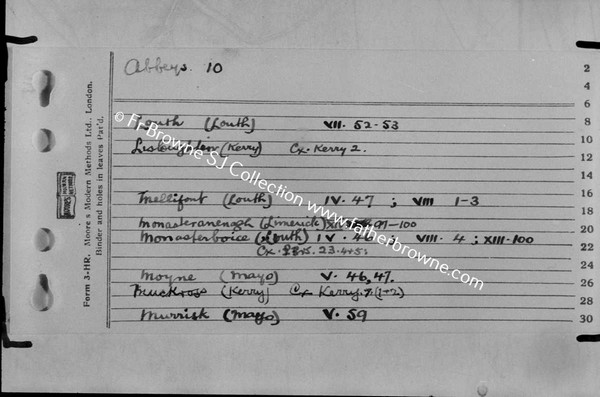 Abbeys. 10
Louth (Louth) VII. 52-53
(Kerry) Cx. Kerry 2.
Mellifont (Louth) IV. 47 ; VIII 1-3
Monasteranenagh (Limerick) 97-100
Monasterboice (Louth) IV. ; VIII. 4 ; XIII-100
Cx.
Moyne (Mayo) V. 46,47.
Muckross (Kerry) Cx Kerry. 7. (1+2)
Murrisk (Mayo) V. 59
2
4
6
8
10
12
14
16
18
20
22
24
26
28
30
Form 3-HR. Moore's Modern Methods Ltd., London.
Binder and holes in leaves Pat'd.
© Fr Browne SJ Collection www.fatherbrowne.com